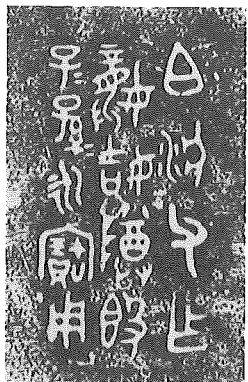 白父乍
龏姞𣪘
子孫永寶用